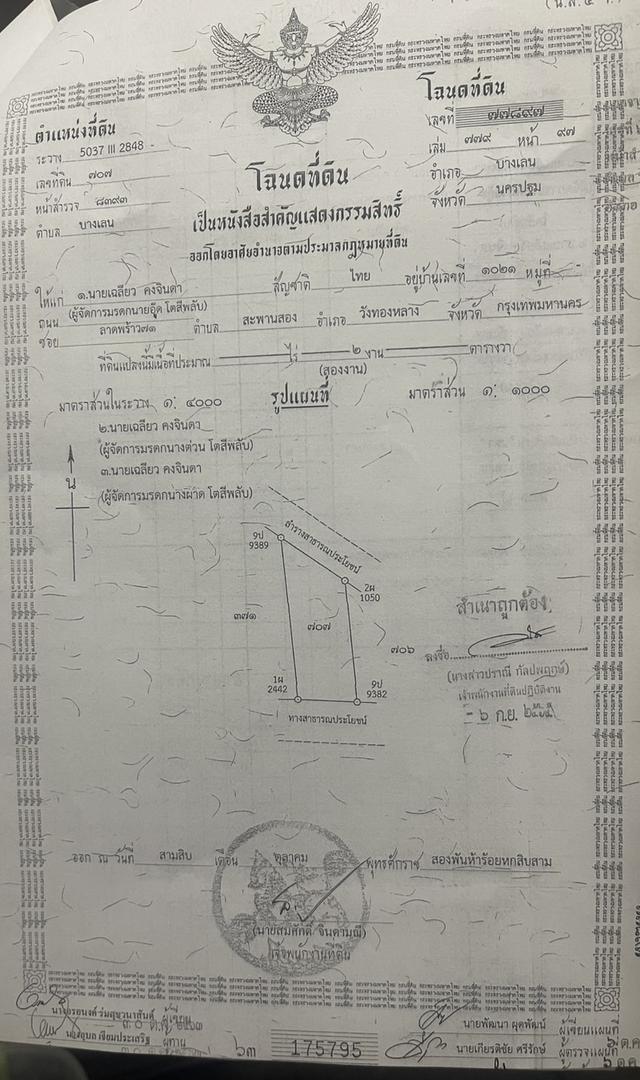 (น.ส.๔ จ.)
ตำแหน่งที่ดิน
ระวาง 5037 III 2848 -
เลขที่ดิน ๗๐๗
หน้าสำรวจ ๘๓๙๓
ตำบล บางเลน
โฉนดที่ดิน
เลขที่ ๗๗๘๙๗
เล่ม ๗๗๙ หน้า ๙๗
อำเภอ บางเลน
จังหวัด นครปฐม
โฉนดที่ดิน
เป็นหนังสือสำคัญแสดงกรรมสิทธิ์
ออกโดยอาศัยอำนาจตามประมวลกฎหมายที่ดิน
ให้แก่ ๑.นายเฉลียว คงจินดา สัญชาติ ไทย อยู่บ้านเลขที่ ๑๐๒๑ หมู่ที่ -
(ผู้จัดการมรดกนายอู๊ด โตสีพลับ)
ถนน ซอย ลาดพร้าว๗๑ ตำบล สะพานสอง อำเภอ วังทองหลาง จังหวัด กรุงเทพมหานคร
ที่ดินแปลงนี้มีเนื้อที่ประมาณ ไร่ ๒ งาน ตารางวา
(สองงาน)
มาตราส่วนในระวาง ๑: ๔๐๐๐ รูปแผนที่ มาตราส่วน ๑: ๑๐๐๐
๒.นายเฉลียว คงจินดา
(ผู้จัดการมรดกนางต่วน โตสีพลับ)
๓.นายเฉลียว คงจินดา
(ผู้จัดการมรดกนางผาด โตสีพลับ)
น
ลำรางสาธารณประโยชน์
9ป
9389
2ผ
1050
๓๗๑
๗๐๗
๗๐๖
1ผ
2442
9ป
9382
ทางสาธารณประโยชน์
สำเนาถูกต้อง
ลงชื่อ
(นางสาวปราณี กัลปพฤกษ์)
เจ้าพนักงานที่ดินปฏิบัติงาน
- ๖ ก.ย.
ออก ณ วันที่ สามสิบ เดือน ตุลาคม พุทธศักราช สองพันห้าร้อยหกสิบสาม
(นายสมศักดิ์ จินดามณี)
เจ้าพนักงานที่ดิน
ผู้เขียน
ผู้ทาน
๖๓
175795
นายพัฒนา ผุดพัฒน์ ผู้เขียนแผนที่
นายเกียรติชัย ศรีรักษ์ ผู้ตรวจแผนที่
๖ ต.ค